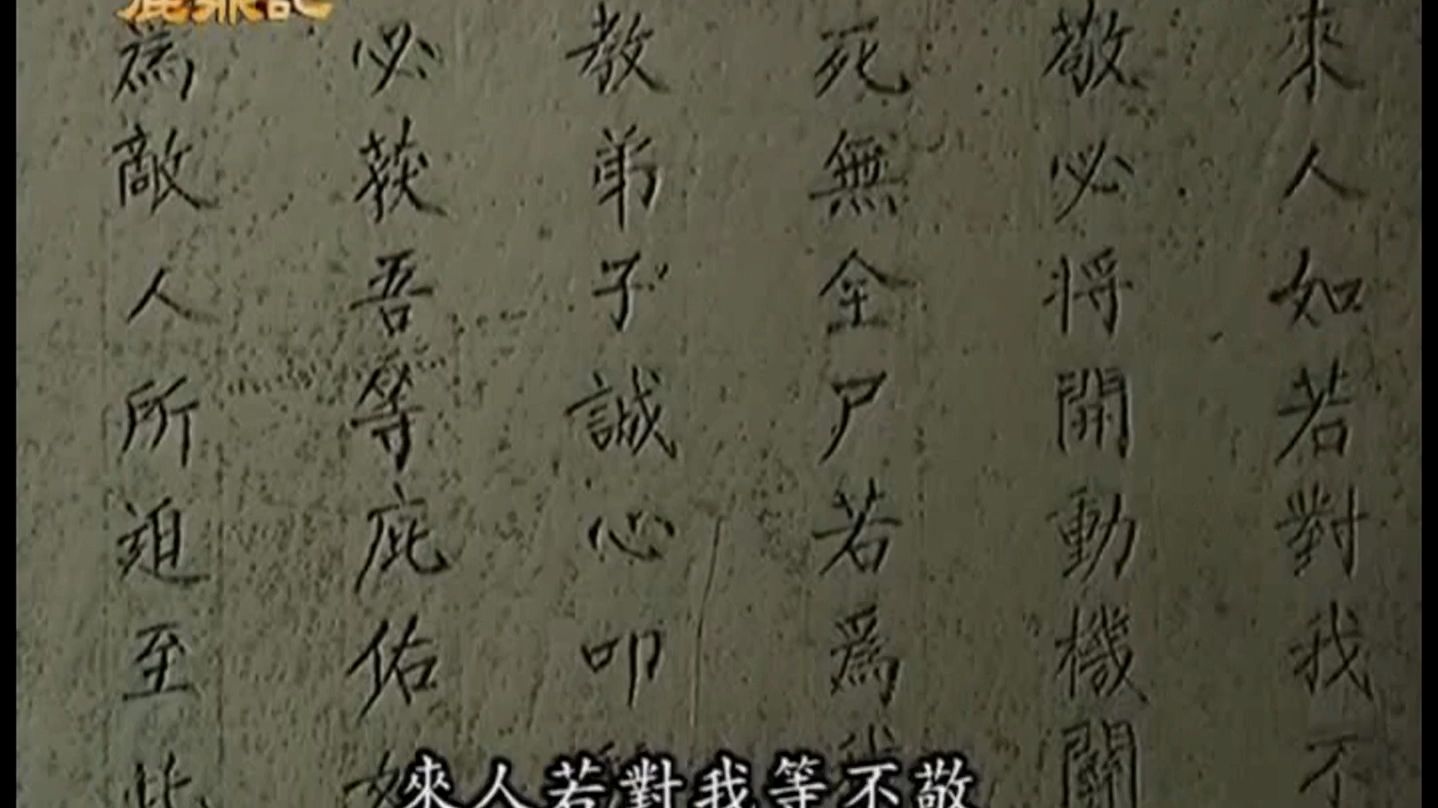 鹿鼎記
來人如若對我不
敬必將開動機關
死無全尸若爲我
教弟子誠心叩
必获吾等庇佑如
為敵人所迫至此
來人若對我等不敬